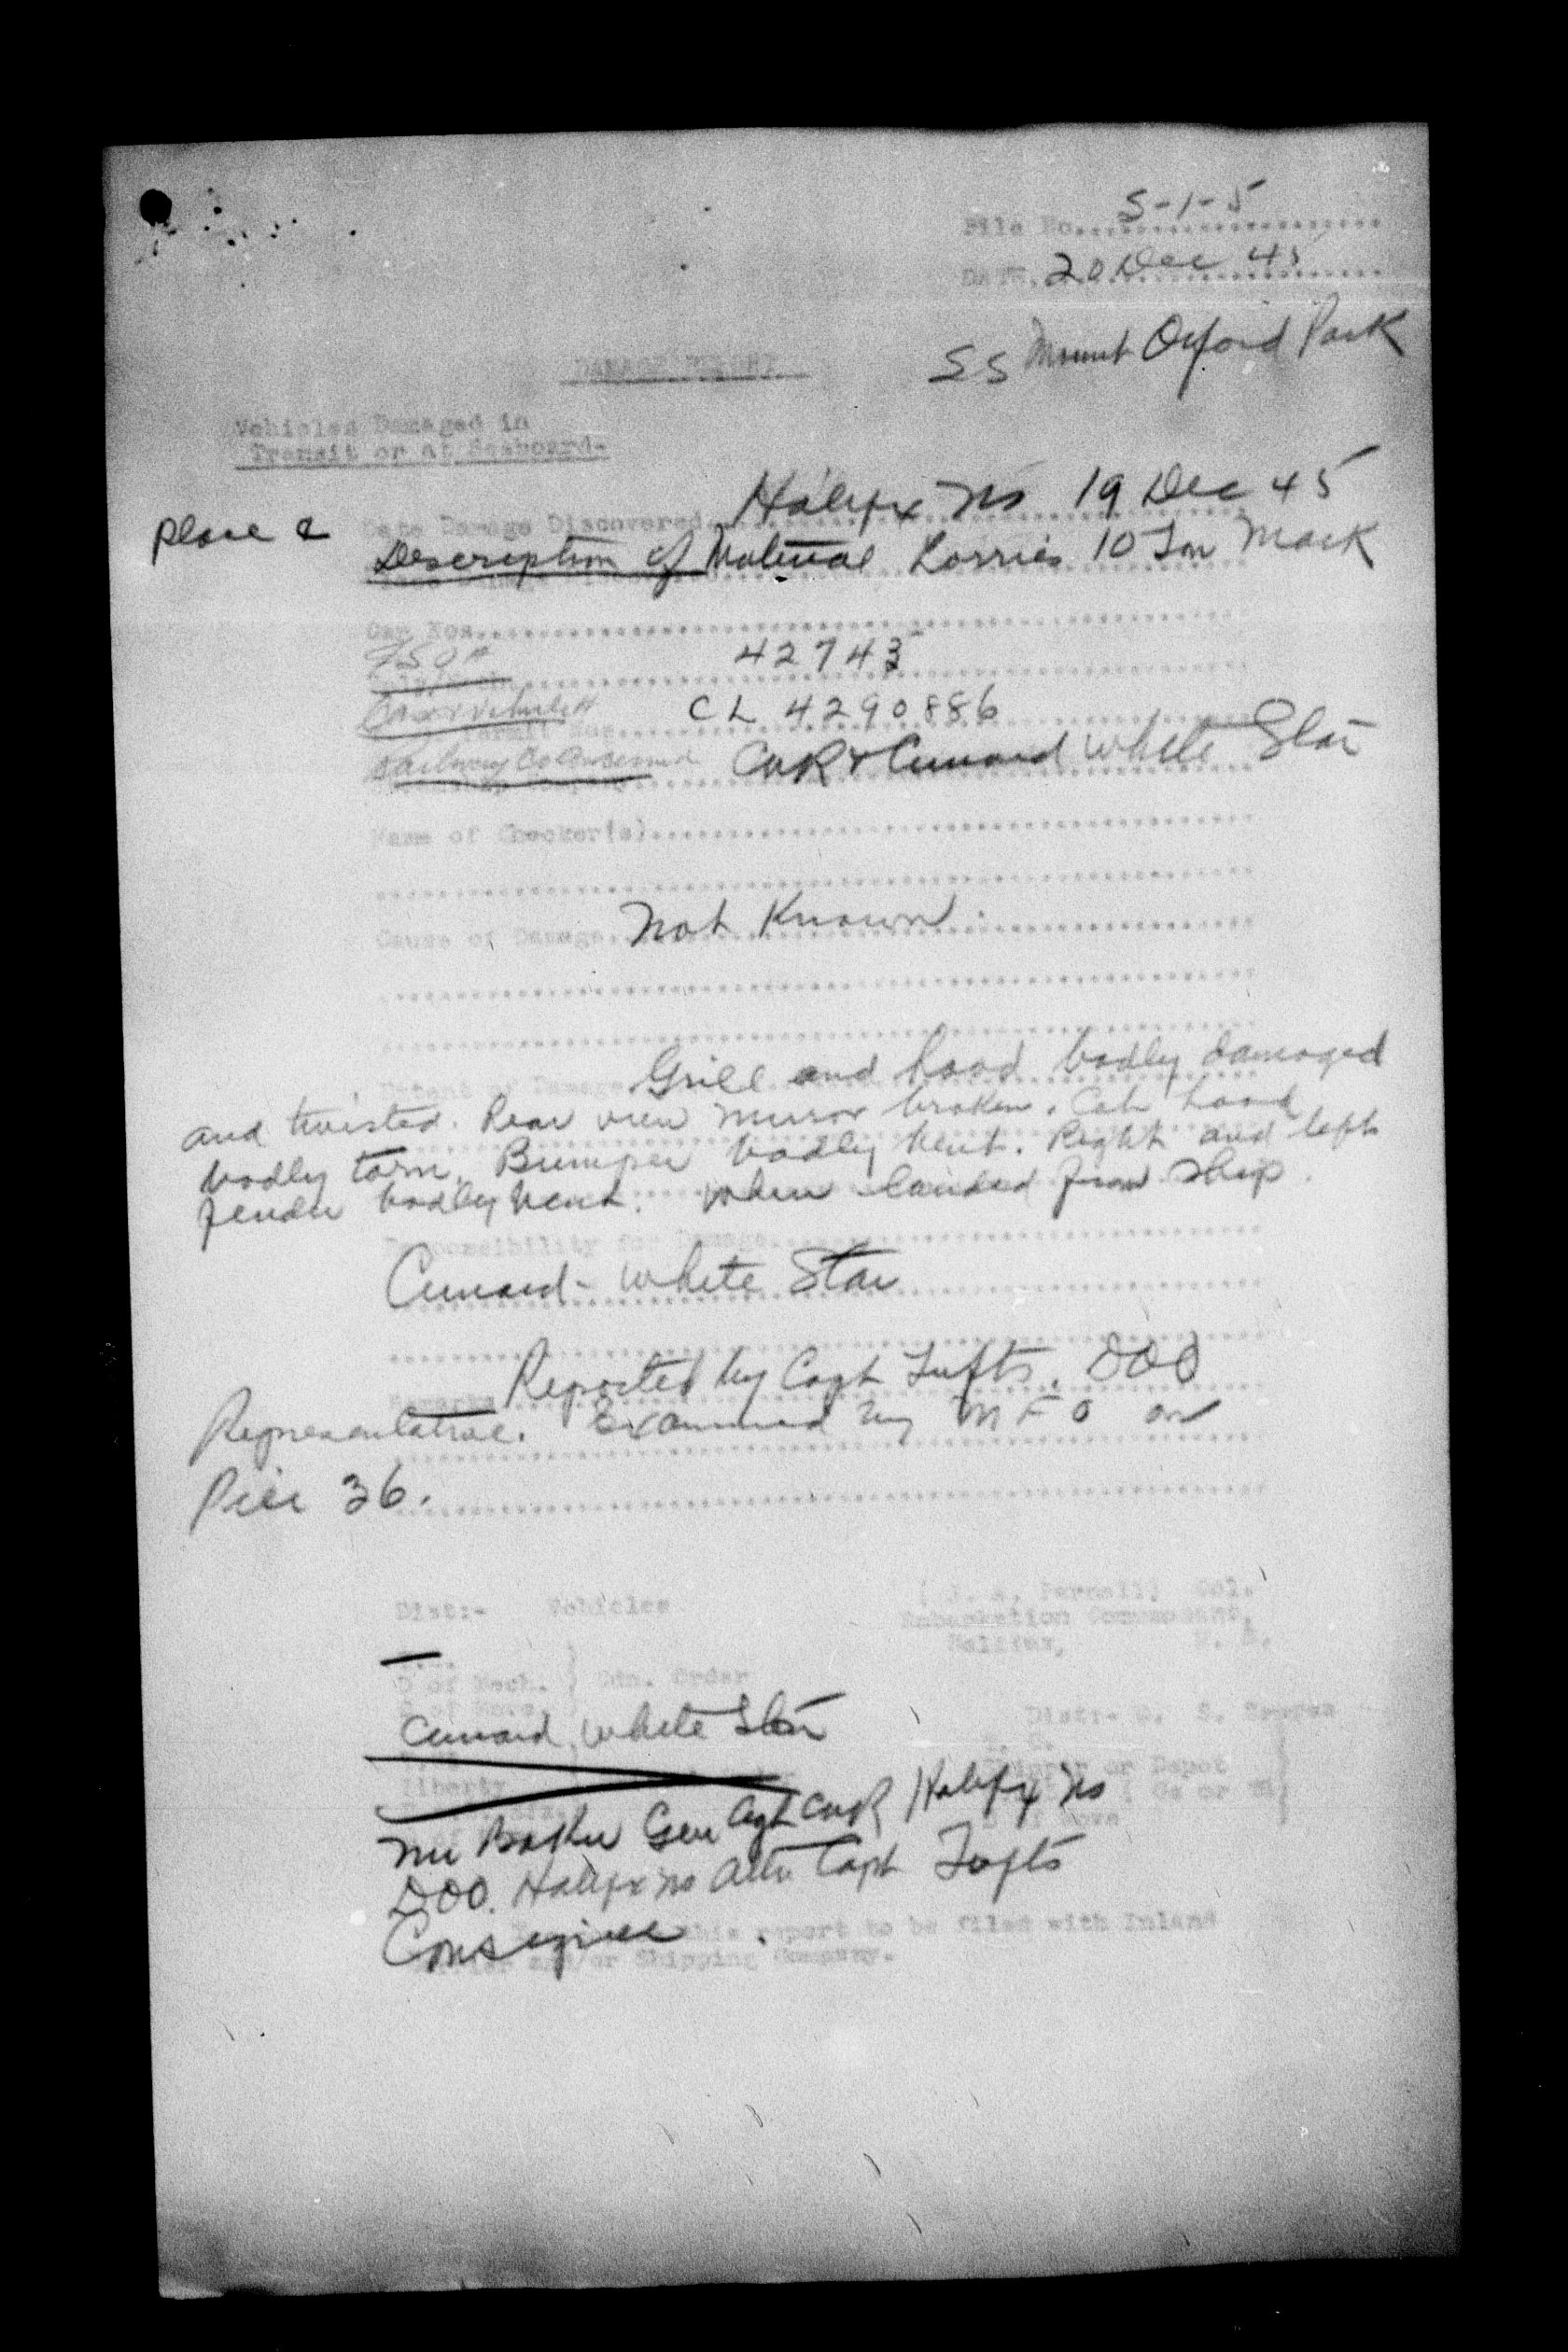 File No. S-1-5
DATE. 20 Dec 45
SS Mount Orford Park
DAMAGE REPORT
Vehicles Damaged in
Transit or at Seaboard-
Place & Date Damage Discovered Halifx NS 19 Dec 45
Description of Material Lorries 10 Ton Mack
Car Nos.
42743
CL 4290886
Railway Co Concerned CNR & Cunard White Star
Name of Checker(s)
Cause of Damage. Not Known.
Extent of Damage Grill and hood badly damaged
and twisted. Rear view mirror broken. Cab hood
badly torn. Bumper badly bent. Right and left
fender badly bent. When landed from ship.
Responsibility for Damage
Cunard - White Star
Remarks Reported by Capt Tufts. DOO
Representative. Examined by M F O on
Pier 36.
Dist:- Vehicles
Col.
Embarkation Commandant,
Halifax, N. S.
D of Mech. } Cdn. Order
Cunard, White Star
Dist:- O. S. Stores
or Depot
Liberty
Mr Baker Gen Agt CNR Halifx NS
DOO. Halifx NS Attn Capt Tufts
Consignee
this report to be filed with Inland
and/or Shipping Company.